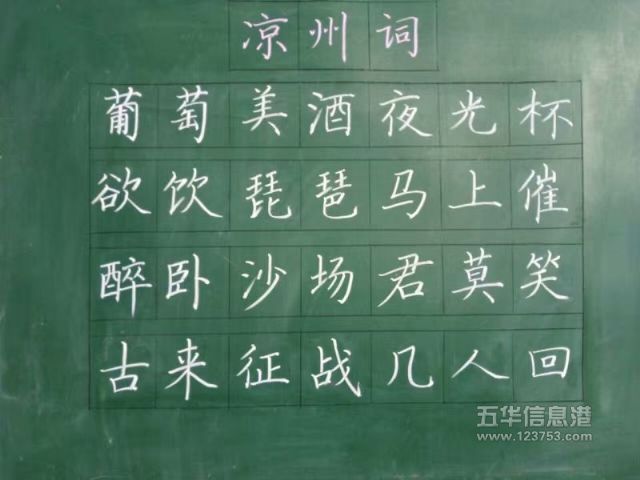 凉州词
葡萄美酒夜光杯
欲饮琵琶马上催
醉卧沙场君莫笑
古来征战几人回
五华信息港
www.123753.com